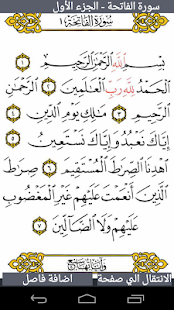 سورة الفاتحة - الجزء الأول
سُورَةُ الفَاتِحَةِ ١
بِسْمِ ٱللَّهِ ٱلرَّحْمَٰنِ ٱلرَّحِيمِ ١
ٱلْحَمْدُ لِلَّهِ رَبِّ ٱلْعَٰلَمِينَ ٢ ٱلرَّحْمَٰنِ
ٱلرَّحِيمِ ٣ مَٰلِكِ يَوْمِ ٱلدِّينِ ٤
إِيَّاكَ نَعْبُدُ وَإِيَّاكَ نَسْتَعِينُ ٥
ٱهْدِنَا ٱلصِّرَٰطَ ٱلْمُسْتَقِيمَ ٦ صِرَٰطَ
ٱلَّذِينَ أَنْعَمْتَ عَلَيْهِمْ غَيْرِ ٱلْمَغْضُوبِ
عَلَيْهِمْ وَلَا ٱلضَّآلِّينَ ٧
وآياتها سبع
الانتقال الي صفحة
اضافة فاصل